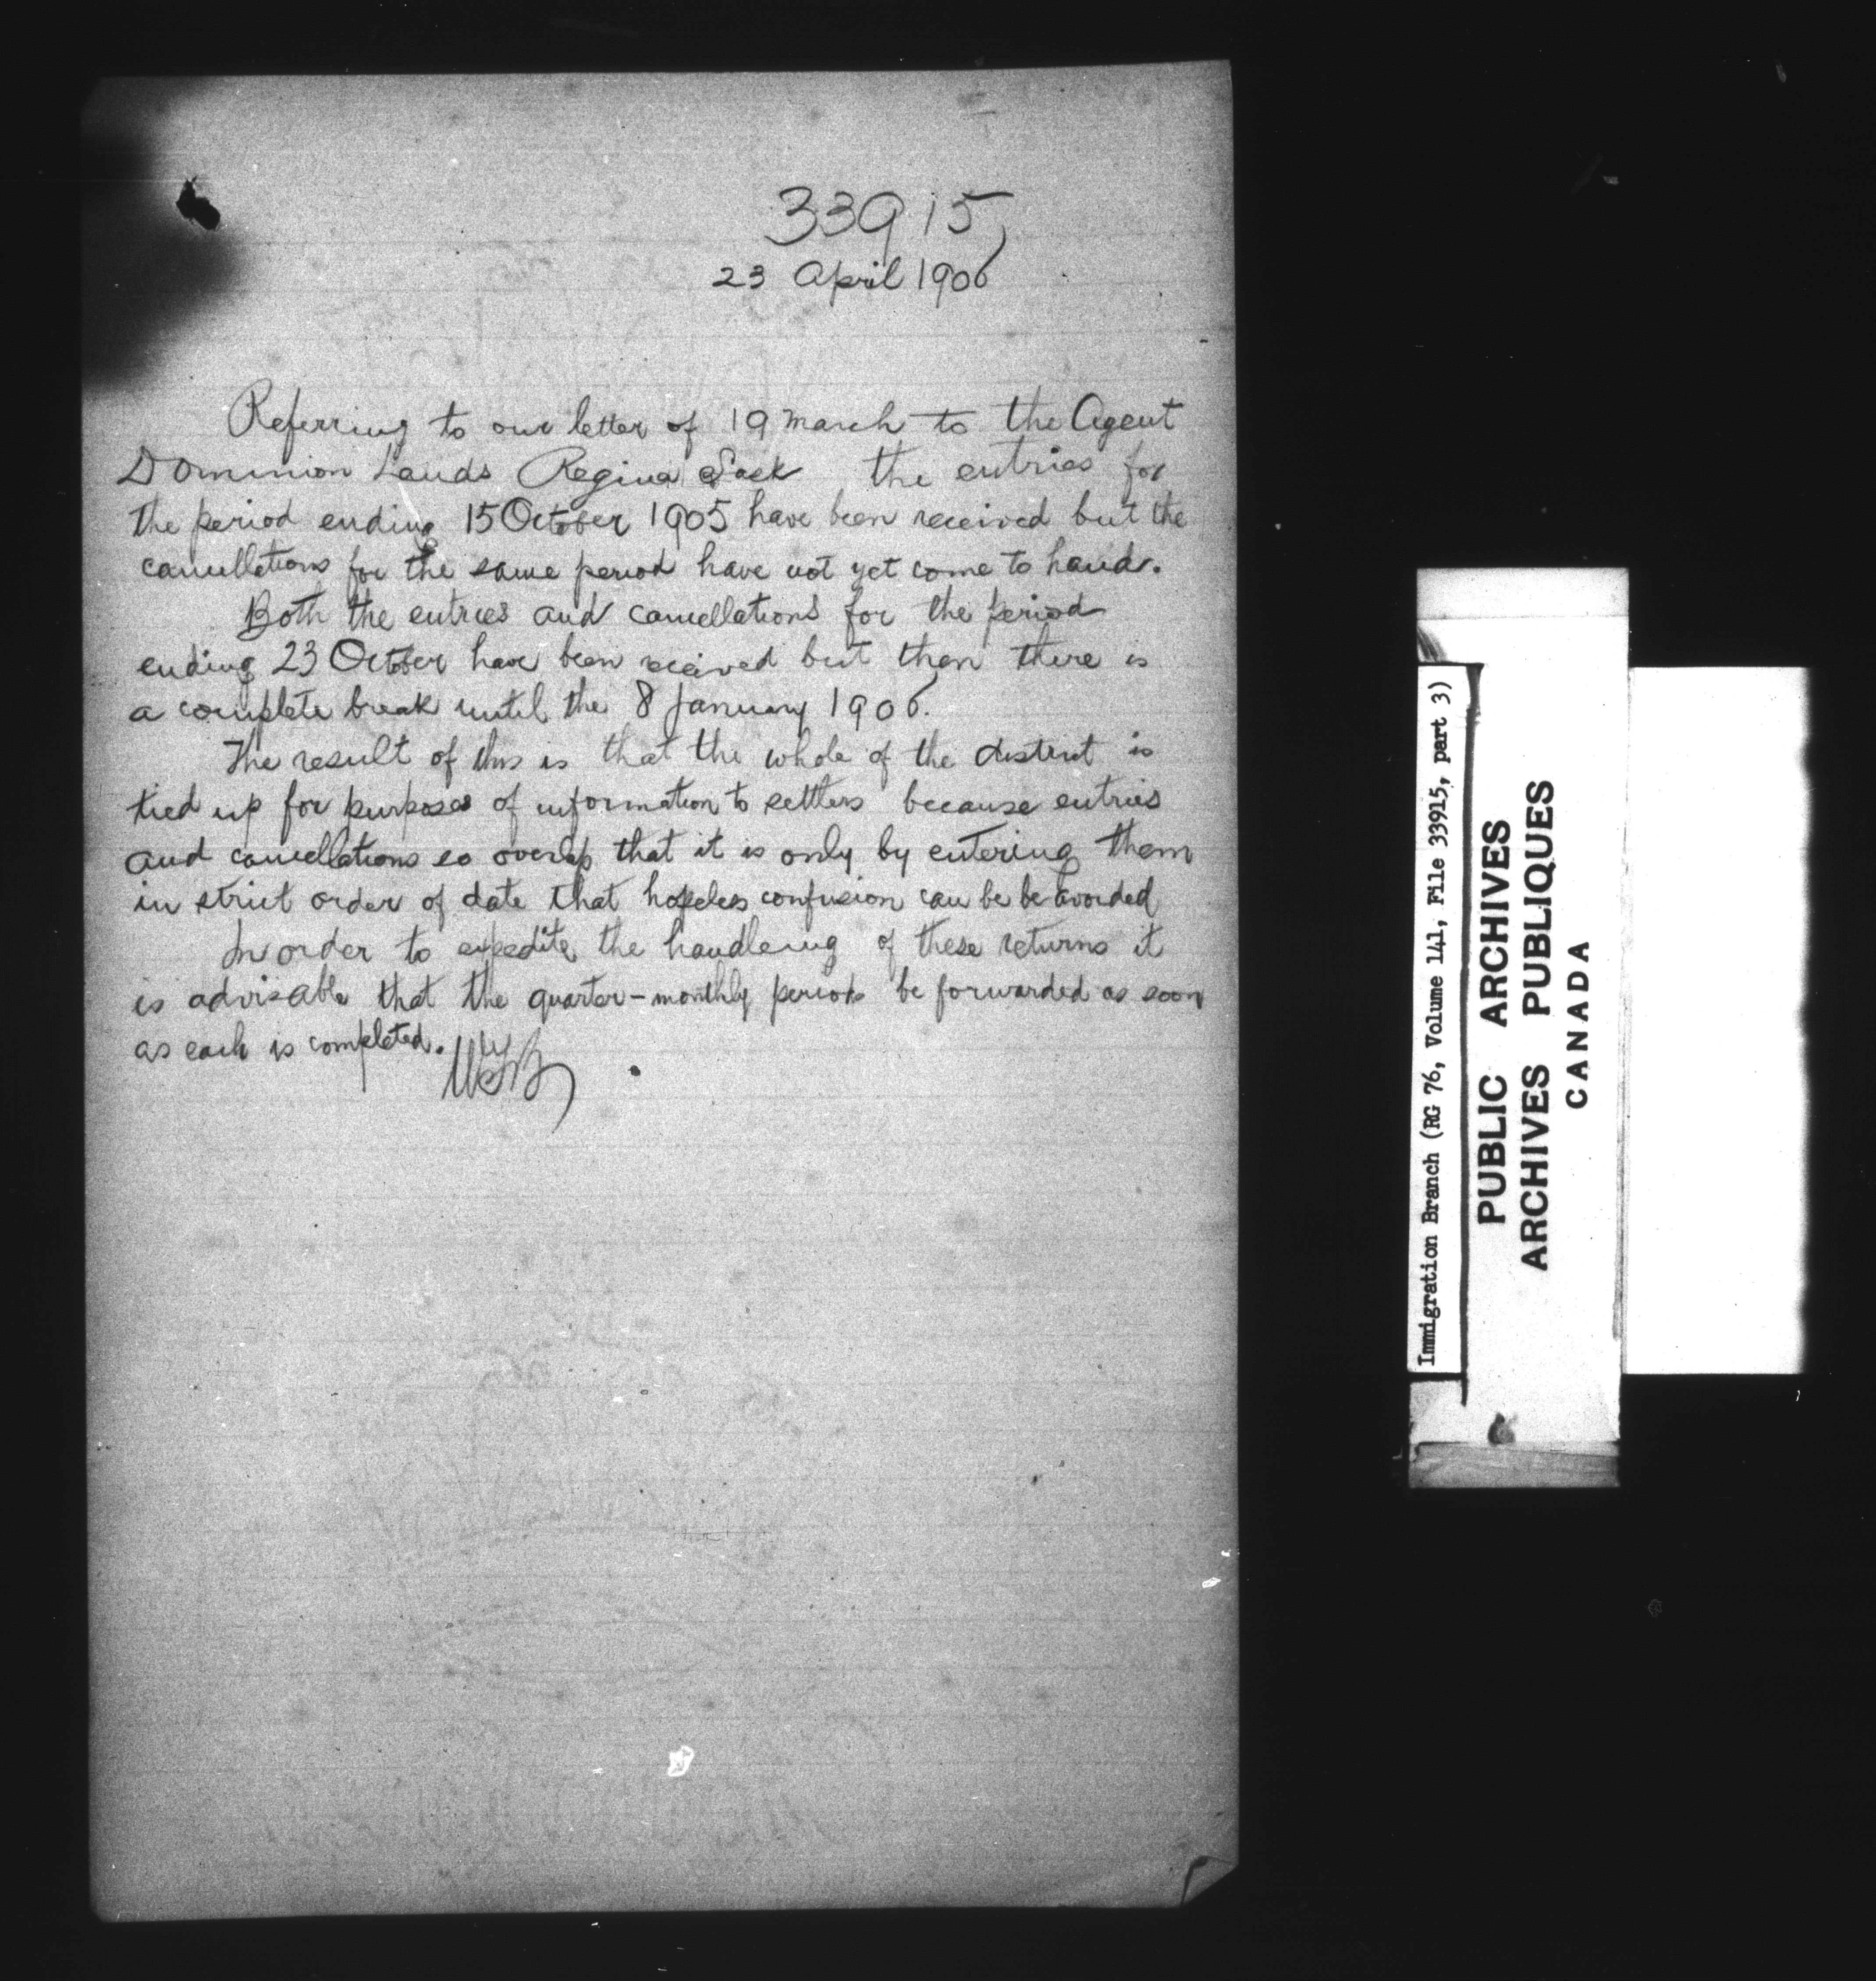 33915
23 April 1906
Referring to our letter of 19 March to the Agent
Dominion Lands Regina Sask the entries for
the period ending 15 October 1905 have been received but the
cancellations for the same period have not yet come to hand.
Both the entries and cancellations for the period
ending 23 October have been received but then there is
a complete break until the 8 January 1906.
The result of this is that the whole of the district is
tied up for purposes of information to settlers because entries
and cancellations so overlap that it is only by entering them
in strict order of date that hopeless confusion can be be avoided
In order to expedite the handleing of these returns it
is advisable that the quarter-monthly periods be forwarded as soon
as each is completed.
Immigration Branch (RG 76, Volume 141, File 33915, part 3)
PUBLIC ARCHIVES
ARCHIVES PUBLIQUES
CANADA